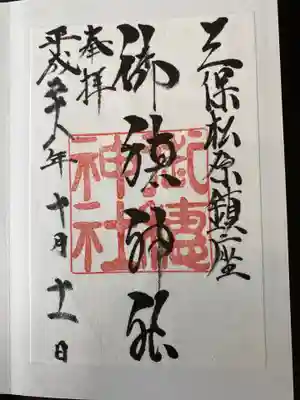 三保松原鎮座
御穂神社
奉拝
平成二十八年十月十一日
御穗
神社